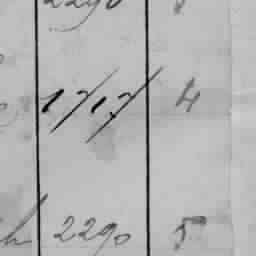 2290
1717 4
2290 5